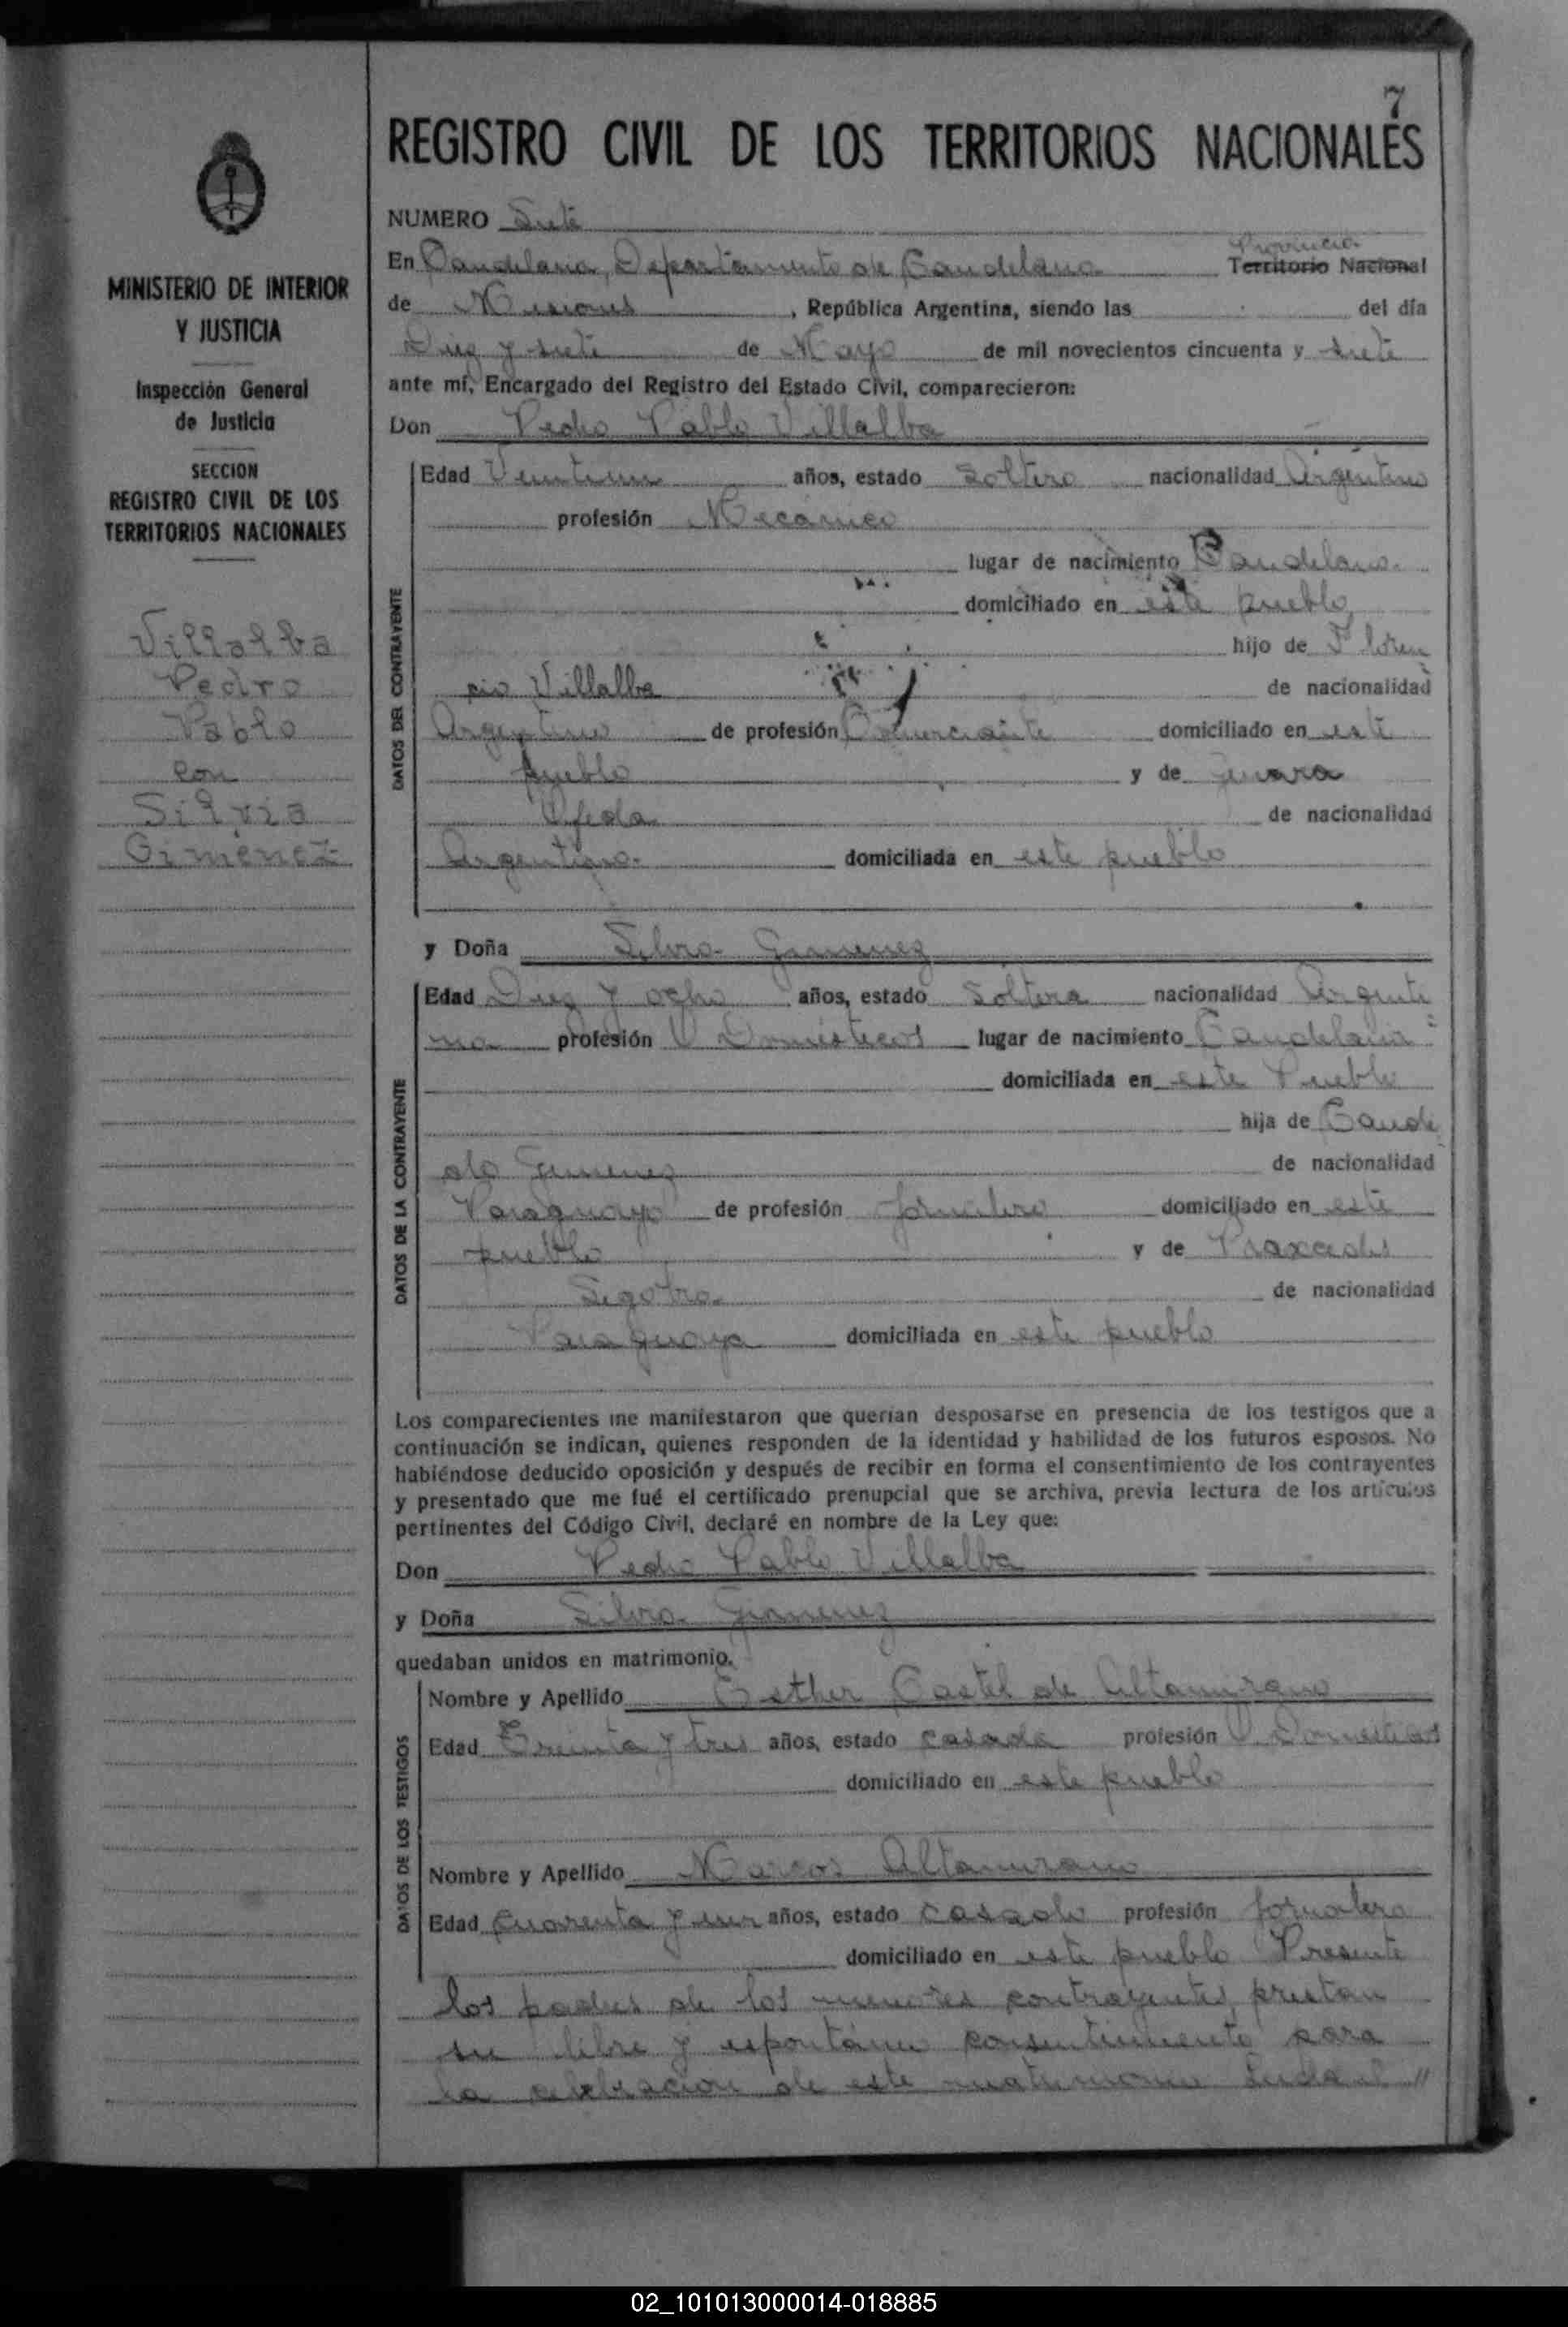 7
REGISTRO CIVIL DE LOS TERRITORIOS NACIONALES
MINISTERIO DE INTERIOR
Y JUSTICIA
Inspección General
de Justicia
SECCION
REGISTRO CIVIL DE LOS
TERRITORIOS NACIONALES
Villalba
Pedro
Pablo
con
Silvia
Gimenez
NUMERO Siete
Provincia
En Candelaria, Departamento de Candelaria Territorio Nacional
de Misiones, República Argentina, siendo las del día
Diez y siete de Mayo de mil novecientos cincuenta y siete
ante mí, Encargado del Registro del Estado Civil, comparecieron:
Don Pedro Pablo Villalba
DATOS DEL CONTRAYENTE
Edad Veintiun años, estado soltero nacionalidad Argentino
profesión Mecánico
lugar de nacimiento Candelaria
domiciliado en este pueblo
hijo de Floren
cio Villalba de nacionalidad
Argentino de profesión Comerciante domiciliado en este
pueblo y de
de nacionalidad
Argentina domiciliada en este pueblo
y Doña Silvia Gimenez
DATOS DE LA CONTRAYENTE
Edad Diez y ocho años, estado Soltera nacionalidad Argenti
na profesión Q Domésticos lugar de nacimiento Candelaria
domiciliada en este Pueblo
hija de Candi
do Gimenez de nacionalidad
Paraguayo de profesión Jornalero domiciliado en este
pueblo y de Praxedes
de nacionalidad
Paraguaya domiciliada en este pueblo
Los comparecientes me manifestaron que querían desposarse en presencia de los testigos que a
continuación se indican, quienes responden de la identidad y habilidad de los futuros esposos. No
habiéndose deducido oposición y después de recibir en forma el consentimiento de los contrayentes
y presentado que me fué el certificado prenupcial que se archiva, previa lectura de los artículos
pertinentes del Código Civil, declaré en nombre de la Ley que:
Don Pedro Pablo Villalba
y Doña Silvia Gimenez
quedaban unidos en matrimonio.
DATOS DE LOS TESTIGOS
Nombre y Apellido Esther Castel de Altamirano
Edad Treinta y tres años, estado casada profesión Q. Domesticos
domiciliado en este pueblo
Nombre y Apellido Marcos Altamirano
Edad Cuarenta y un años, estado casado profesión Jornalero
domiciliado en este pueblo Presente
los padres de los menores contrayentes, prestan
su libre y espontáneo consentimiento para
la celebración de este matrimonio //
02_101013000014-018885